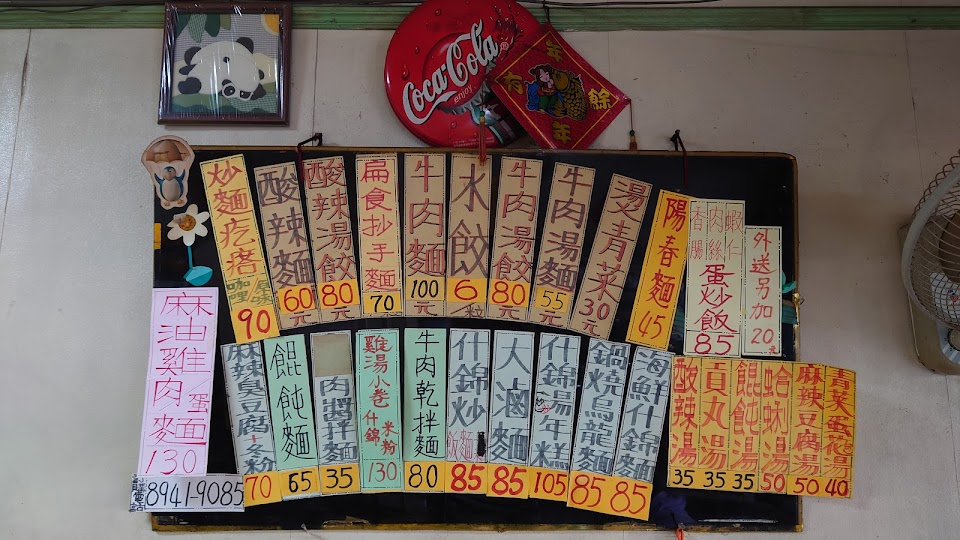 Coca-Cola
年年有餘
炒麵疙瘩 咖哩 原味 90
酸辣麵 60元
酸辣湯餃 80元
扁食抄手麵 70元
牛肉麵 100元
水餃 6元
牛肉湯餃 80元
牛肉湯麵 55元
燙青菜 30元
陽春麵 45
香腸 肉絲 蝦仁 蛋炒飯 85
外送另加20元
麻油雞肉/蛋麵 130
8941-9085
麻辣臭豆腐+冬粉 70
餛飩麵 65
肉醬拌麵 35
雞湯小卷 什錦 米粉 130
牛肉乾拌麵 80
什錦炒飯麵 85
大滷麵 85
什錦湯年糕 105
鍋燒烏龍麵 85
海鮮什錦麵 85
酸辣湯 35
貢丸湯 35
餛飩湯 35
蛤蜊湯 50
麻辣豆腐湯 50
青菜蛋花湯 40